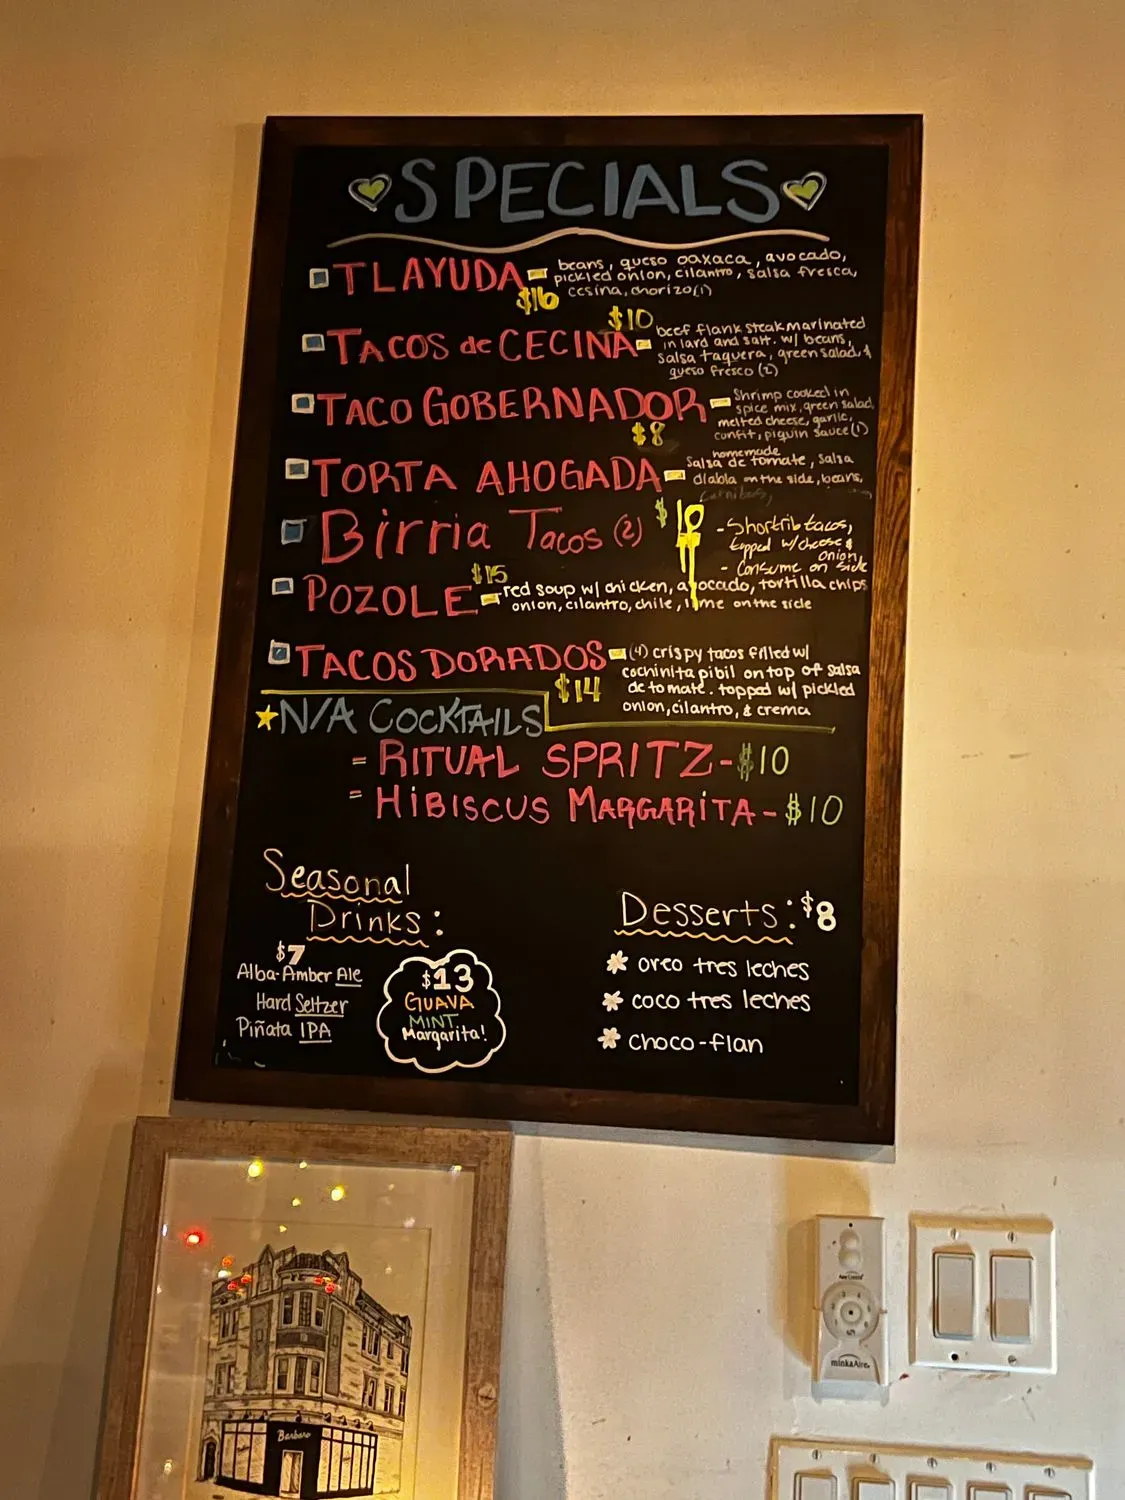 SPECIALS
TLAYUDA - beans, queso oaxaca, avocado,
pickled onion, cilantro, salsa fresca,
$16 cesina, chorizo(1)
$10
TACOS de CECINA - beef flank steak marinated
in lard and salt. w/ beans,
salsa taquera, green salad, &
queso fresco (2)
TACO GOBERNADOR - Shrimp cooked in
spice mix, green salad,
melted cheese, garlic,
$8 confit, piquin sauce(1)
homemade
TORTA AHOGADA - Salsa de tomate, Salsa
diabla on the side, beans,
carnitas,
Birria Tacos (2) $10 - Shortrib tacos,
topped w/ cheese &
onion,
- Consume on side
$15
POZOLE - red soup w/ chicken, avocado, tortilla chips
onion, cilantro, chile, lime on the side
TACOS DORADOS - (4) crispy tacos filled w/
cochinita pibil on top of salsa
$14 de tomate. topped w/ pickled
onion, cilantro, & crema
N/A COCKTAILS
- RITUAL SPRITZ - $10
- HIBISCUS MARGARITA - $10
Seasonal
Drinks:
$7
Alba-Amber Ale
Hard Seltzer
Piñata IPA
$13
GUAVA
MINT
Margarita!
Desserts: $8
oreo tres leches
coco tres leches
choco-flan
Barbaro
minkaAire